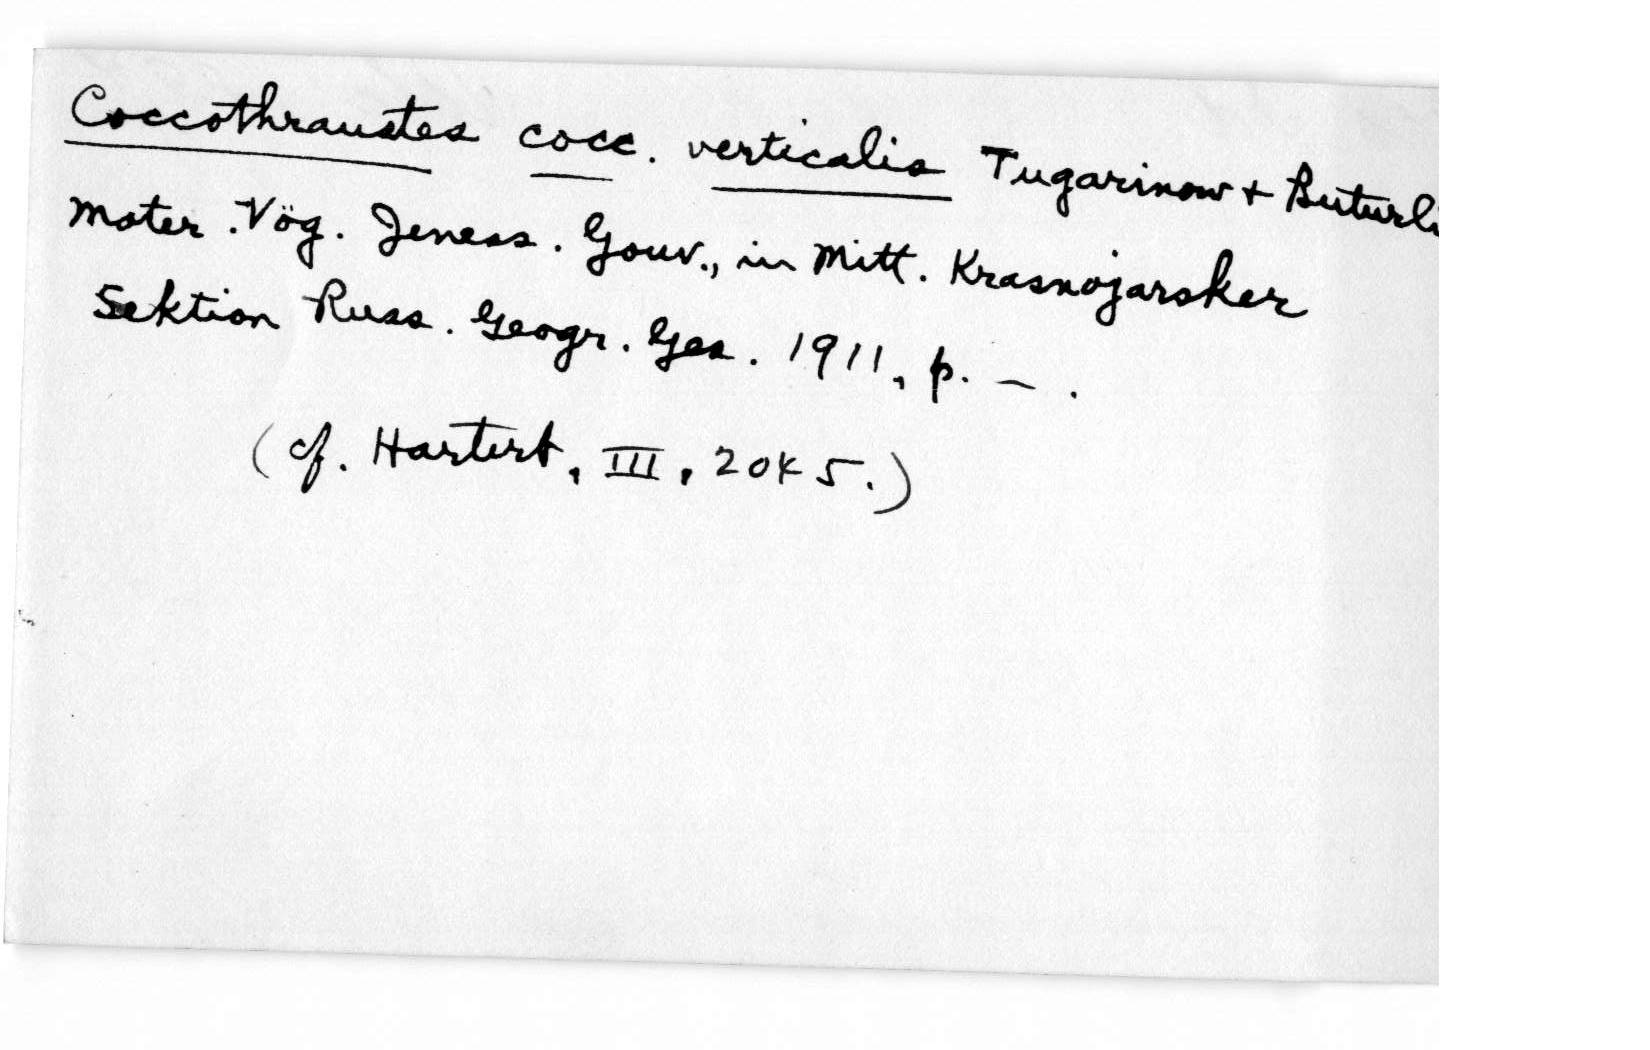 Coccothraustes cocc. verticalis Tugarinow + Buturli
Mater. Vög. Jeness. Gouv., in Mitt. Krasnojarsker
Sektion Russ. Geogr. Ges. 1911, p. – .
(cf. Hartert, III, 2045.)